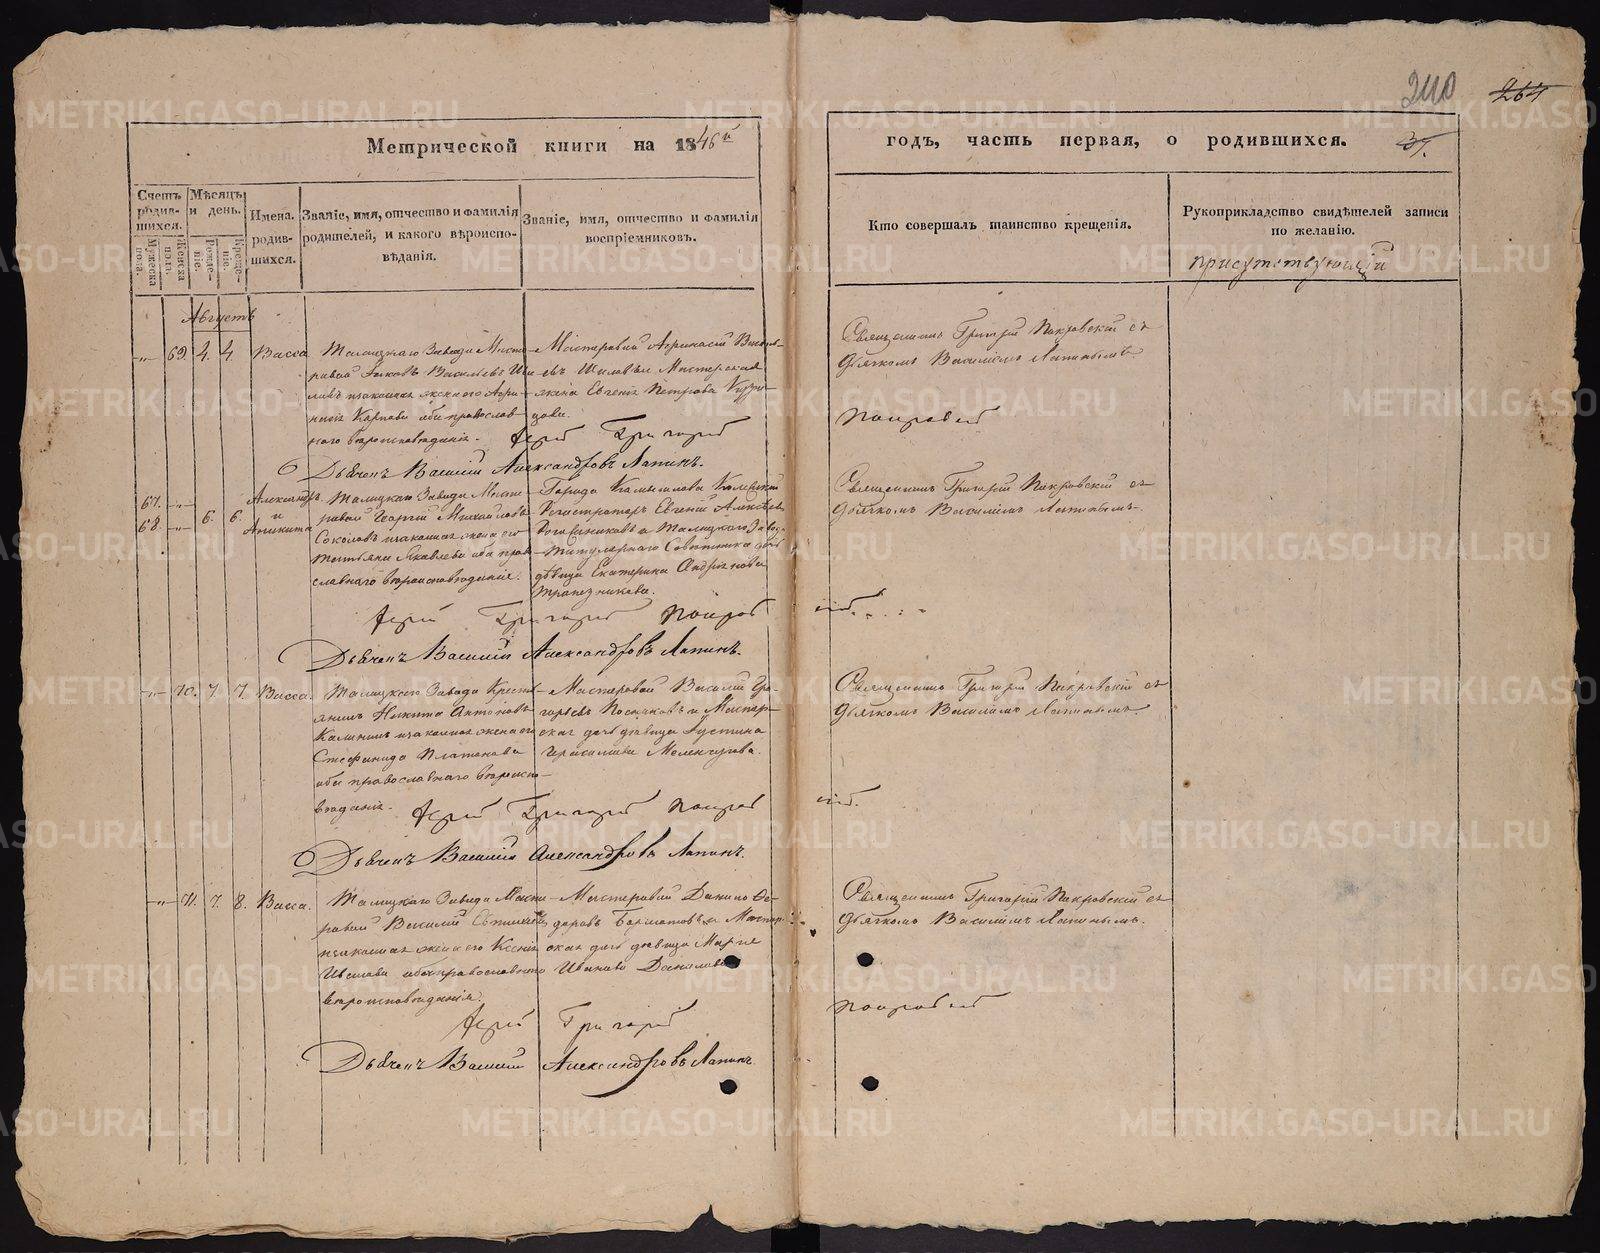 240
264
37.
Метрической книги на 1846й
годъ, часть первая, о родившихся.
Счетъ родив-шихся.
Мѣсяцъ и день.
Мужеска пола.
Женска пола.
Рожде-ніе.
Креще-ніе.
Имена родив-шихся.
Званіе, имя, отчество и фамилія родителей, и какого вѣроиспо-вѣданія.
Званіе, имя, отчество и фамилія воспріемниковъ.
Кто совершалъ таинство крещенія.
Рукоприкладство свидѣтелей записи по желанію.
Августъ
69 4. 4. Васса
Талицкаго Завода Масте-
ровой Яковъ Васильевъ
законная жена его
Карпова оба православ-
наго вѣроисповѣданія.
Мастеровой Афанасій Василь-
евъ
жена Евгенія Петрова
Священникъ Григорій Покровскій съ
Дьячкомъ Василіемъ Лапинымъ
Іерей Григорій
Покровскій
Дьячекъ Василій Александровъ Лапинъ.
67.
68. 6. 6. Александръ
и
Аникита
Талицкаго Завода Масте-
ровой Георгій Михайловъ
Соколовъ законная жена его
Татьяна Яковлева оба право-
славнаго вѣроисповѣданія.
Города Камышлова
Регистраторъ Евгеній Алексѣевъ
и Талицкаго Завода
Титулярнаго Совѣтника дочь
дѣвица Екатерина Андріанова
Трапезникова.
Священникъ Григорій Покровскій съ
Дьячкомъ Василіемъ Лапинымъ.
Іерей Григорій Покровскій.
Дьячекъ Василій Александровъ Лапинъ.
70. 7. 7. Васса.
Талицкаго Завода Кресть-
янинъ Никита Антоновъ
Калининъ законная жена его
Стефанида Платонова
оба православнаго вѣроиспо-
вѣданія.
Мастеровой Василій Гри-
горьевъ и Мастер-
ская дочь дѣвица Іустина
Герасимова
Священникъ Григорій Покровскій съ
Дьячкомъ Василіемъ Лапинымъ.
Іерей Григорій Покровскій.
Дьячекъ Василій Александровъ Лапинъ.
71. 7. 8. Васса.
Талицкаго Завода Масте-
ровой Василій
законная жена его Ксенія
Иванова оба православнаго
вѣроисповѣданія.
Мастеровой Данило Ѳе-
доровъ и Мастер-
ская дочь дѣвица Марія
Иванова Данилова
Священникъ Григорій Покровскій съ
Дьячкомъ Василіемъ Лапинымъ.
Іерей Григорій
Покровскій
Дьячекъ Василій Александровъ Лапинъ.
METRIKI.GASO-URAL.RU